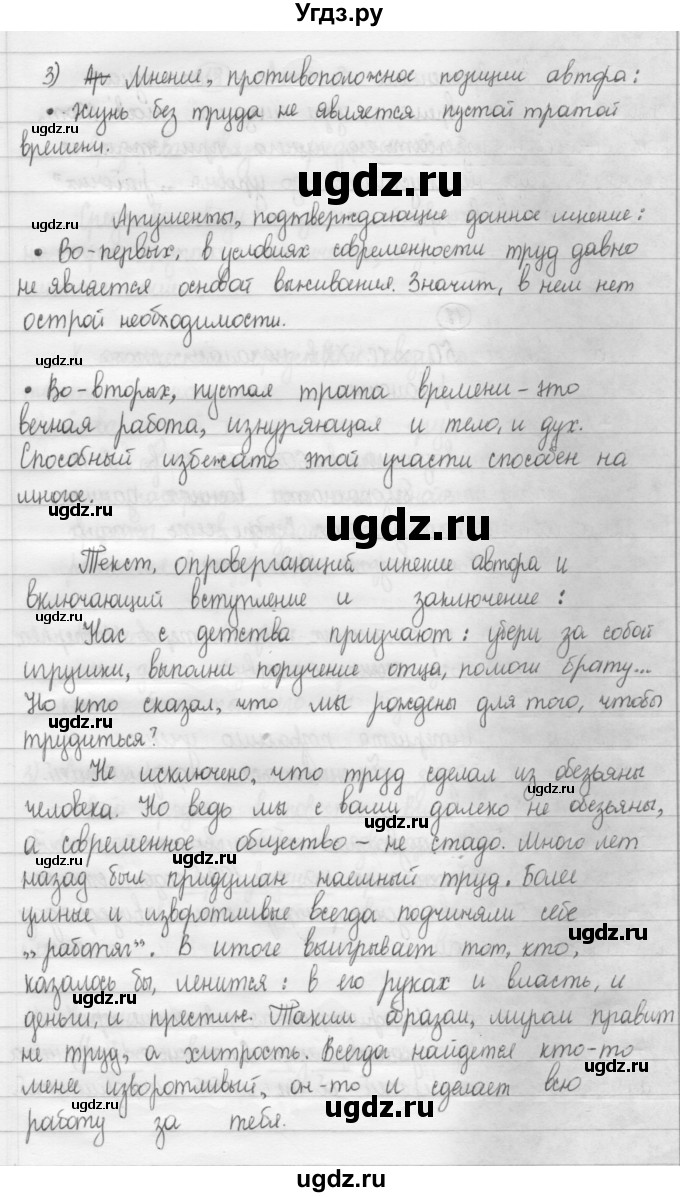 Угдз.ру
3) Ар Мнение, противоположное позиции автора:
• Жизнь без труда не является пустой тратой
ugdz.ru
времени.
ugdz.ru
ugdz.ru
Аргументы, подтверждающие данное мнение:
• Во-первых, в условиях современности труд давно
не является основой выживания. Значит, в нем нет
острой необходимости.
ugdz.ru
• Во-вторых, пустая трата времени – это
вечная работа, изнуряющая и тело, и дух.
Способный избежать этой участи способен на
многое.
ugdz.ru
ugdz.ru
Текст, опровергающий мнение автора и
включающий вступление и заключение:
ugdz.ru
Нас с детства приучают: убери за собой
игрушки, выполни поручение отца, помоги брату...
Но кто сказал, что мы рождены для того, чтобы
ugdz.ru
трудиться?
Не исключено, что труд сделал из обезьяны
человека. Но ведь мы с вами далеко не обезьяны,
ugdz.ru
а современное общество – не стадо. Много лет
ugdz.ru ugdz.ru
назад был придуман наемный труд. Более
умные и изворотливые всегда подчиняли себе
„работяг“. В итоге выигрывает тот, кто,
казалось бы, ленится: в его руках и власть, и
ugdz.ru
деньги, и престиж. Таким образом, миром правит
не труд, а хитрость. Всегда найдется кто-то
менее изворотливый, он-то и сделает всю
ugdz.ru ugdz.ru
работу за тебя.
ugdz.ru